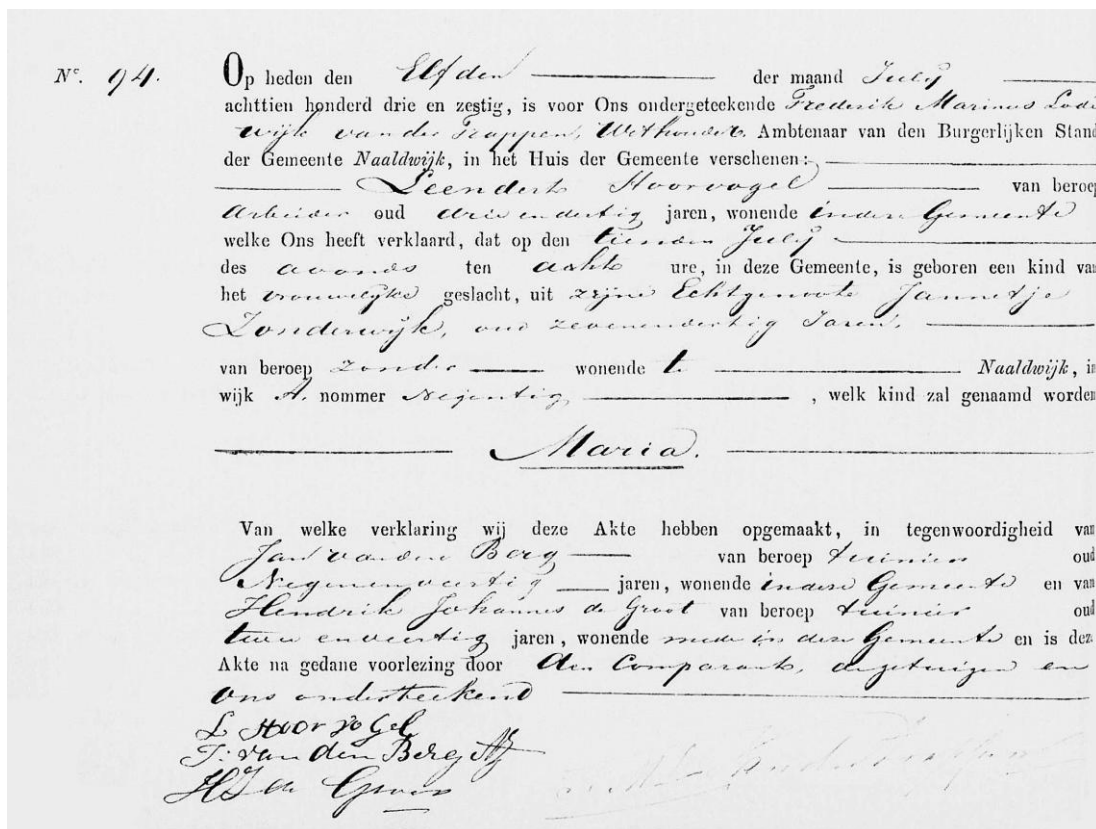 Nº. 94. Op heden den Elfden der maand July
achttien honderd drie en zestig, is voor Ons ondergeteekende Frederik Marinus Lode
wijk van der Trappen, Wethouder. Ambtenaar van den Burgerlijken Stand
der Gemeente Naaldwijk, in het Huis der Gemeente verschenen:
Leendert Hoorvogel van beroep
Arbeider oud drie en dertig jaren, wonende in deze Gemeente
welke Ons heeft verklaard, dat op den tienden July
des avonds ten achte ure, in deze Gemeente, is geboren een kind van
het vrouwelijke geslacht, uit zijne Echtgenoote Jannetje
Zonderwijk, oud zevenendertig Jaren,
van beroep zonder wonende te Naaldwijk, in
wijk A. nommer Negentig, welk kind zal genaamd worden
Maria.
Van welke verklaring wij deze Akte hebben opgemaakt, in tegenwoordigheid van
Jan van den Berg van beroep tuinier oud
Negenenveertig jaren, wonende in deze Gemeente en van
Hendrik Johannes de Groot van beroep tuinier oud
twee enveertig jaren, wonende mede in deze Gemeente en is deze
Akte na gedane voorlezing door den Comparant, de getuigen en
Ons onderteekend
L Hoorvogel
J: van den Berg Az
HJ de Groot